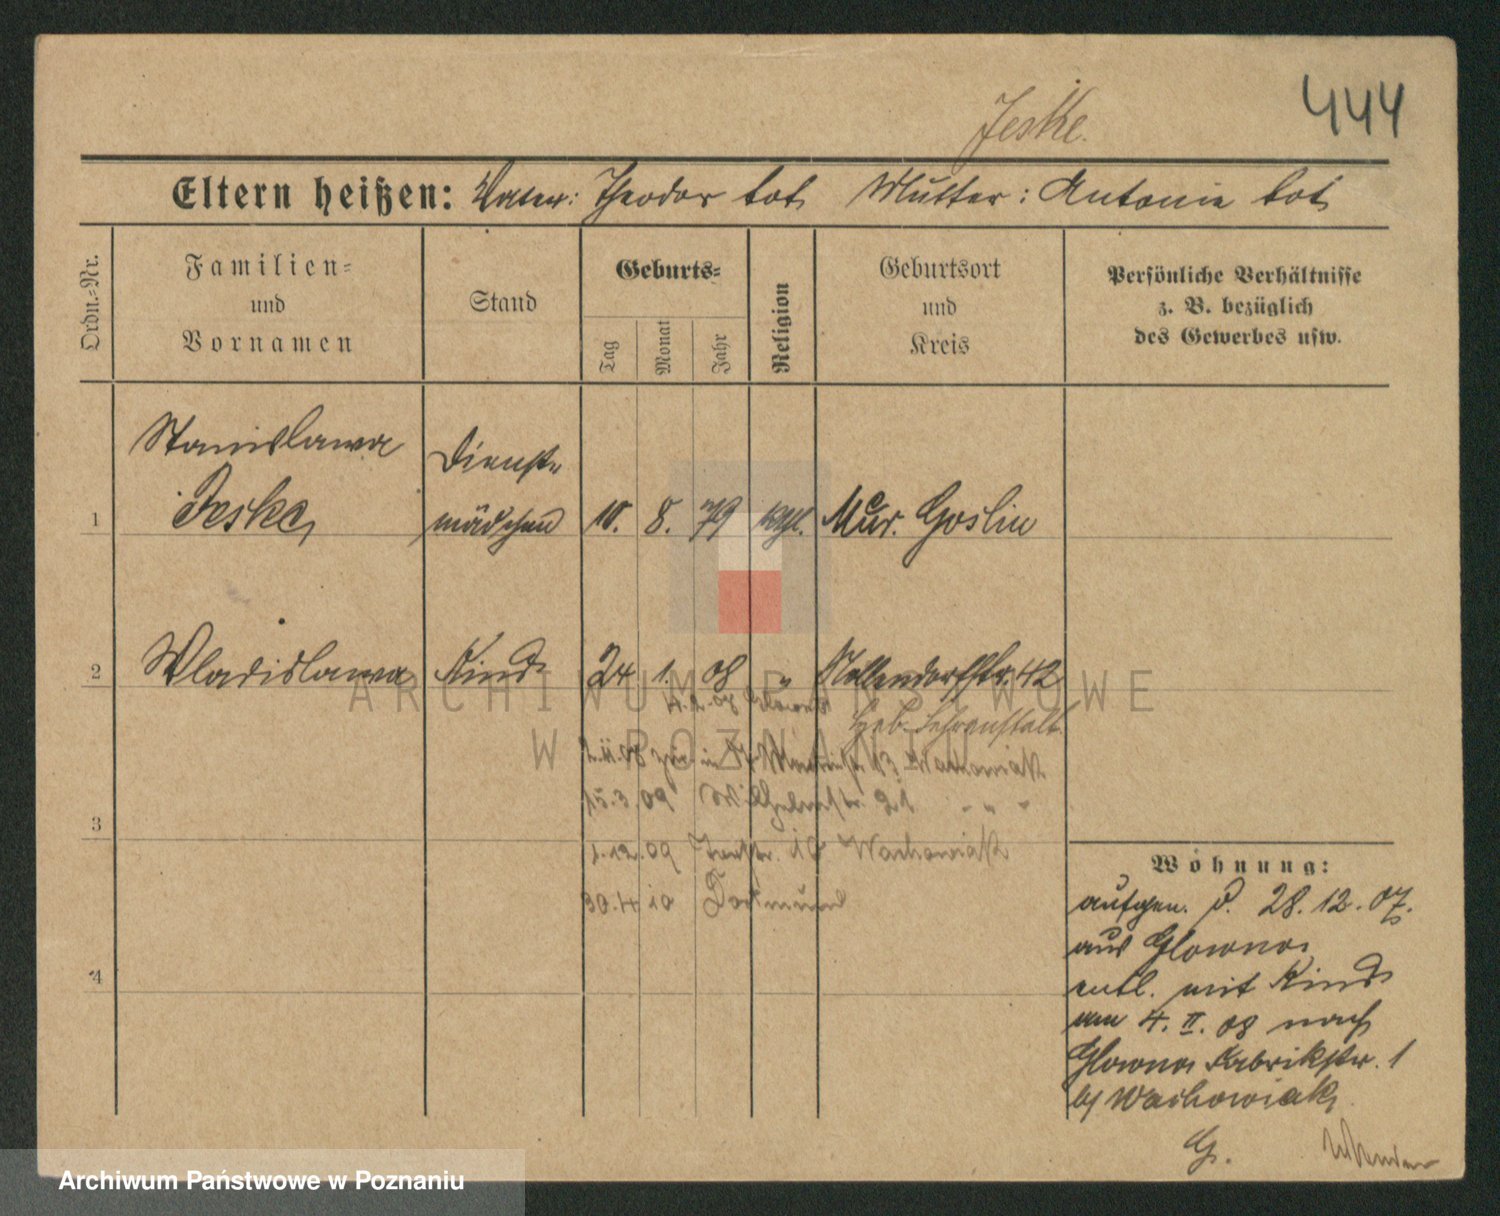 444
Jeske.
Eltern heißen: Vater: Theodor tot Mutter: Antonie tot
Ordn.-Nr.
Familien-
und
Vornamen
Stand
Geburts-
Tag
Monat
Jahr
Religion
Geburtsort
und
Kreis
Persönliche Verhältnisse
z. B. bezüglich
des Gewerbes usw.
Stanislawa Dienst
1 Jeske mädchen 10. 8. 79 kath. Mur. Goslin
2 Wladislawa Kind 24 1. 08 " Nollendorfstr. 42
4.2.08 Glowno Heb. Lehranstalt.
2.11.08 13 Wachowiak
15.3.09 Wilhelmstr. 21 " " "
3
1.12.09 10 Wachowiak
30.4.10 Dortmund
4
Wohnung:
aufgen. d. 28. 12. 07.
aus Glowno
entl. mit Kind
am 4. II. 08 nach
Glowno Fabrikstr. 1
b/ Wachowiak
G.
ARCHIWUM PAŃSTWOWE
W POZNANIU
Archiwum Państwowe w Poznaniu